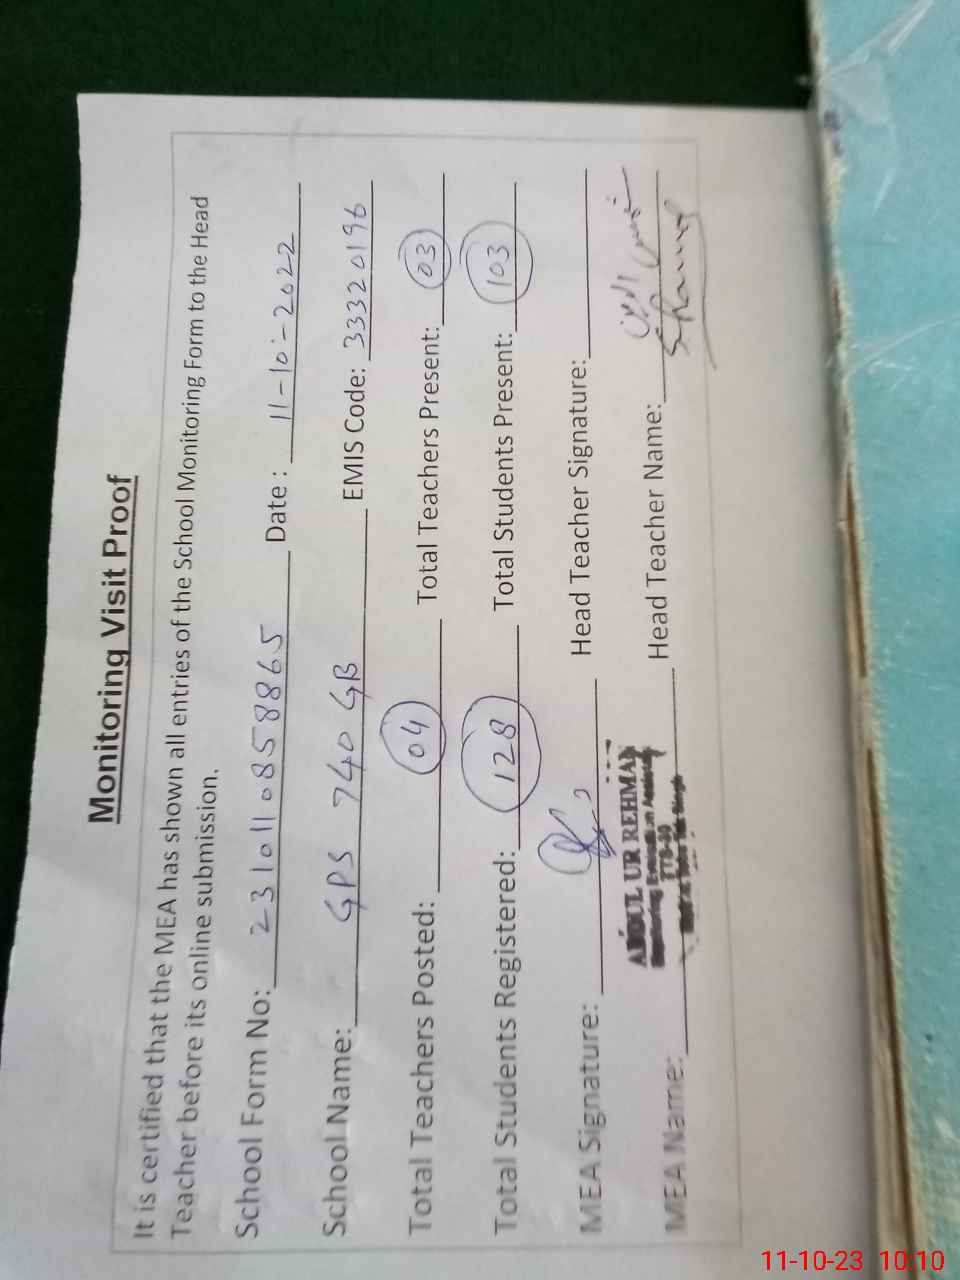 Monitoring Visit Proof
It is certified that the MEA has shown all entries of the School Monitoring Form to the Head
Teacher before its online submission.
School Form No: 2310110858865 Date : 11-10-2022
School Name: GPS 740 GB EMIS Code: 33320196
Total Teachers Posted: 04 Total Teachers Present: 03
Total Students Registered: 128 Total Students Present: 103
MEA Signature: Head Teacher Signature:
ABDUL UR REHMAN
MEA Name: Head Teacher Name:
11-10-23 10:10